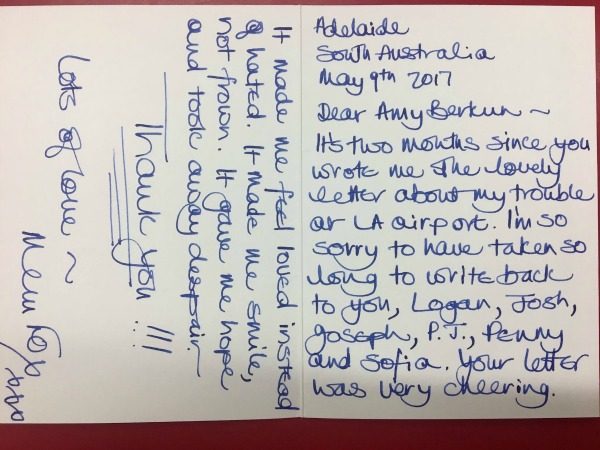 Adelaide
South Australia
May 9th 2017
Dear Amy Berkun ~
It's two months since you
wrote me the lovely
letter about my trouble
at LA airport. I'm so
sorry to have taken so
long to write back
to you, Logan, Josh,
Joseph, P.J., Penny
and Sofia. Your letter
was very cheering.
It made me feel loved instead
of hated. It made me smile,
not frown. It gave me hope
and took away despair.
Thank you!!!
Lots of love ~
Mem Fox
xxx